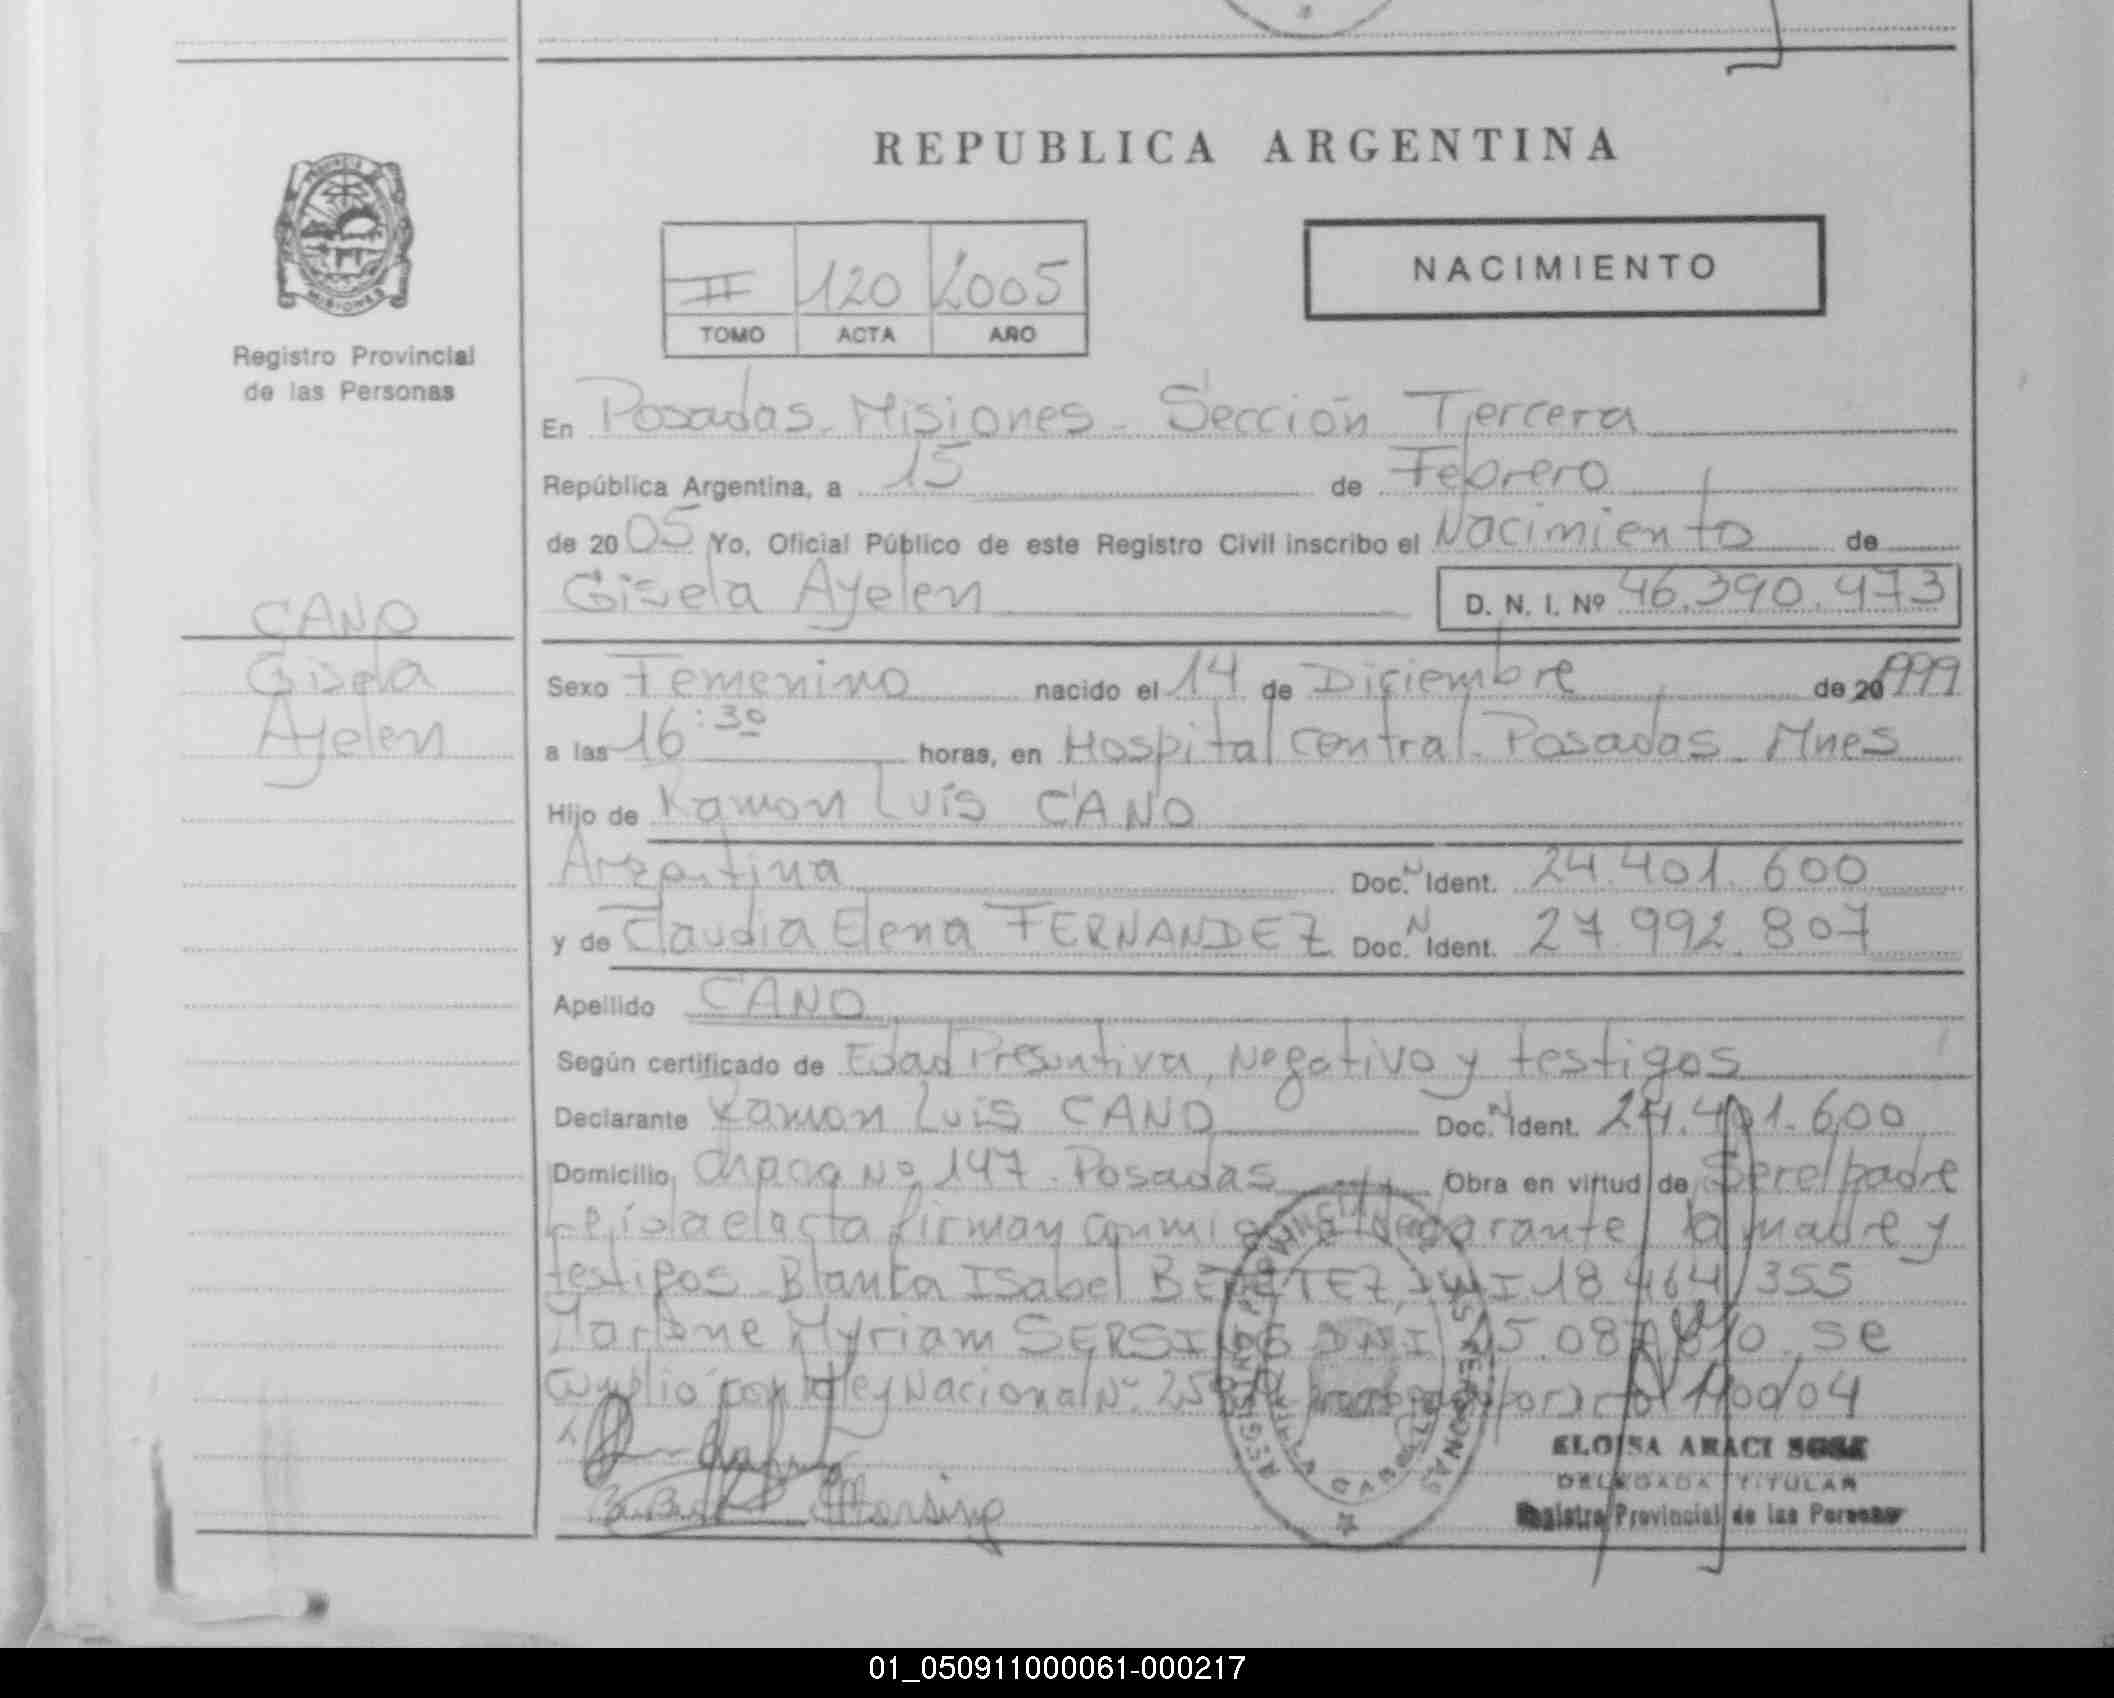 REPUBLICA ARGENTINA
PROVINCIA DE MISIONES
Registro Provincial
de las Personas
II 120 2005
TOMO ACTA AÑO
NACIMIENTO
CANO
Gisela
Ayelen
En Posadas - Misiones - Sección Tercera
República Argentina, a 15 de Febrero
de 2005 Yo, Oficial Público de este Registro Civil inscribo el Nacimiento de
Gisela Ayelen D. N. I. Nº 46.390.473
Sexo Femenino nacido el 14 de Diciembre de 20 1999
a las 16:30 horas, en Hospital Central - Posadas - Mnes
Hijo de Ramon Luis CANO
Argentina Doc. N Ident. 24.401.600
y de Claudia Elena FERNANDEZ Doc. N Ident. 27.992.807
Apellido CANO
Según certificado de Edad Presuntiva, Negativo y testigos
Declarante Ramon Luis CANO Doc. N Ident. 24.401.600
Domicilio Nº 147 - Posadas Obra en virtud de Ser el padre
el acta firman conmigo declarante la madre y
testigos - Blanca Isabel BENITEZ, DNI 18.464.355
Marlene Myriam DNI se
cumplió con la ley Nacional Nº 1100/04
REGISTRO PROVINCIAL DE LAS PERSONAS
ELOISA ARACI SOSA
DELEGADA TITULAR
Registro Provincial de las Personas
01_050911000061-000217